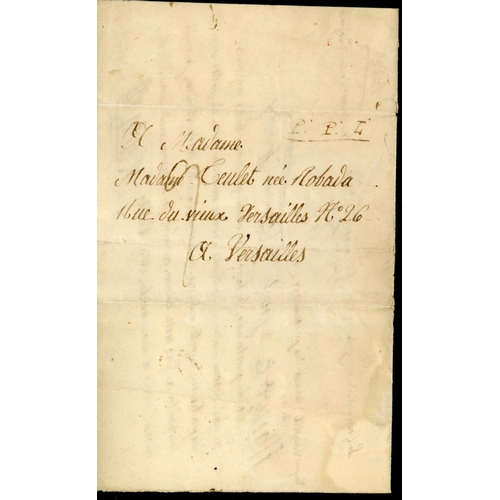 P. P. P.
A Madame
Madame Teulet née Robada
Rue du vieux Versailles N° 26
A Versailles